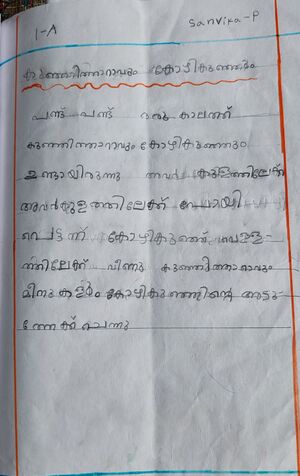 1-A
Sanvika-P
കുഞ്ഞിത്താറാവും കോഴികുഞ്ഞും
പണ്ട് പണ്ട് ഒരു കാലത്ത്
കുഞ്ഞിത്താറാവും കോഴികുഞ്ഞും
ഉണ്ടായിരുന്നു അവർ കുളത്തിലേക്ക്
അവർകുളത്തിലേക്ക് പോയി
പെട്ടന്ന് കോഴികുഞ്ഞ് വെള്ള-
ത്തിലേക്ക് വീണു കുഞ്ഞിത്താറാവും
മീനുകളും കോഴികുഞ്ഞിന്റെ അടു-
ത്തേക്ക് ചെന്നു